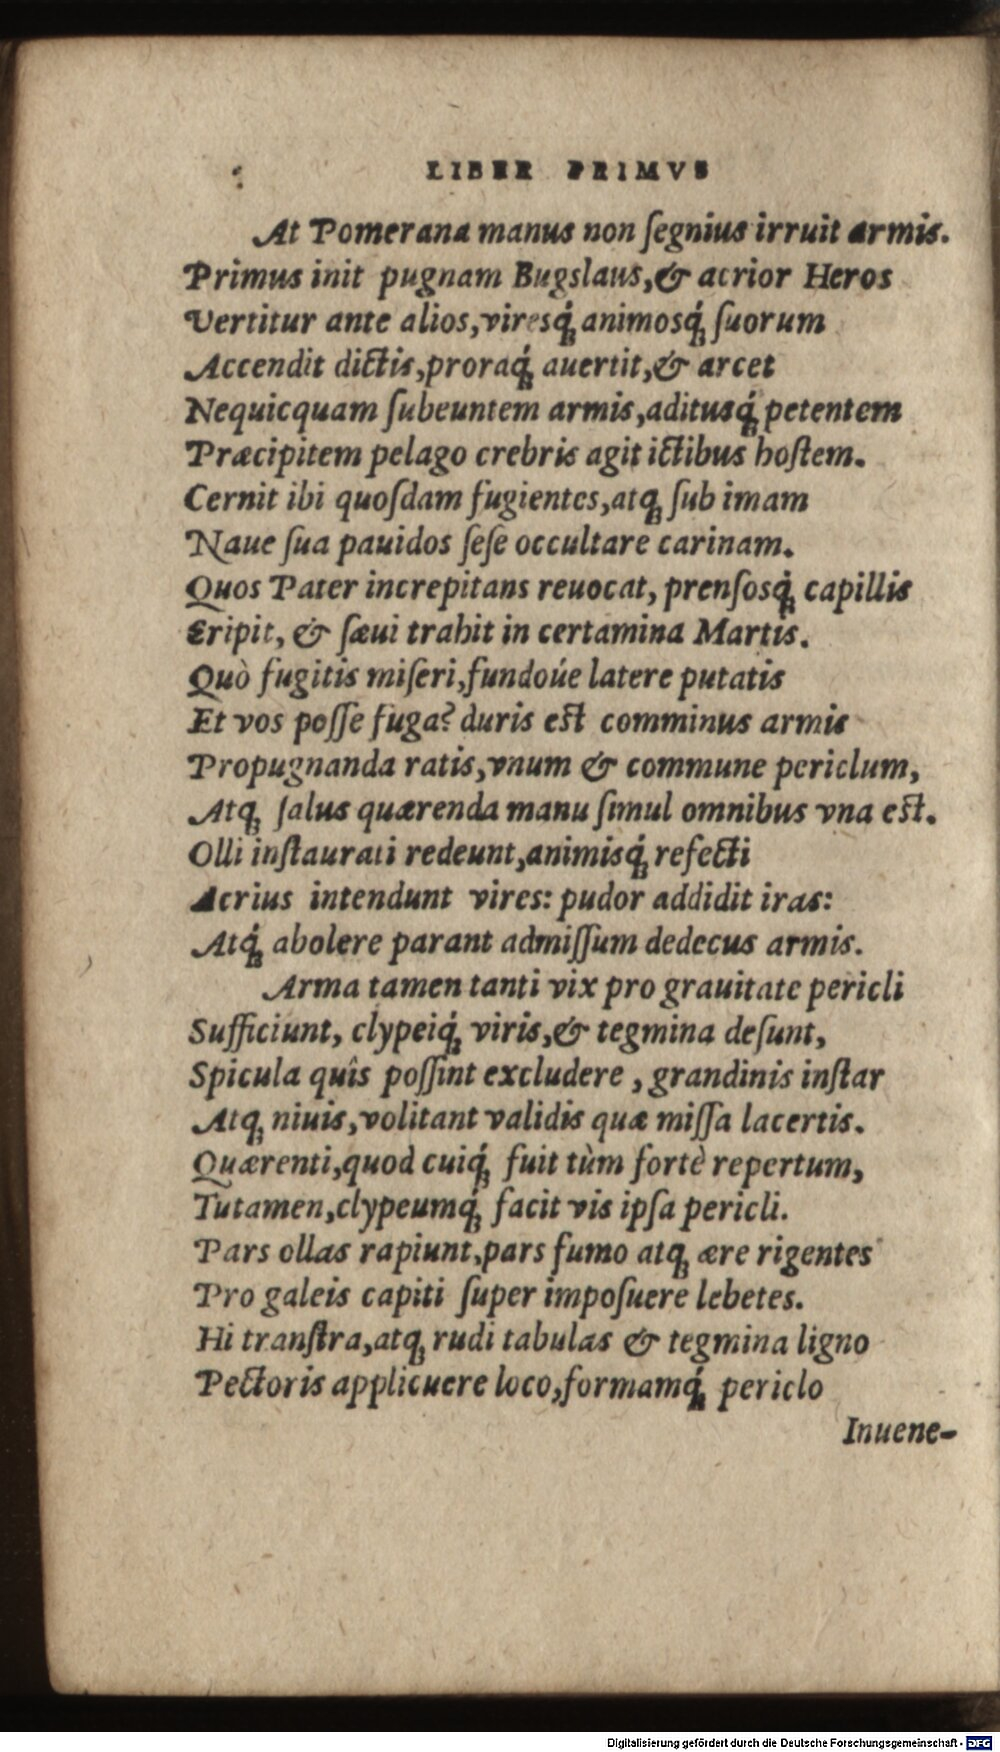 LIBER PRIMVS
At Pomerana manus non ſegnius irruit armis.
Primus init pugnam Bugslaus,& acrior Heros
Vertitur ante alios,viresq́ꝫ animosq́ꝫ ſuorum
Accendit dictis,proraq́ꝫ auertit,& arcet
Nequicquam ſubeuntem armis,aditusq́ꝫ petentem
Præcipitem pelago crebris agit ictibus hoſtem.
Cernit ibi quoſdam fugientes,atqꝫ ſub imam
Naue ſua pauidos ſeſe occultare carinam.
Quos Pater increpitans reuocat, prenſosq́ꝫ capillis
Eripit, & ſæui trahit in certamina Martis.
Quò fugitis miſeri,fundoúe latere putatis
Et vos poſſe fuga? duris eſt comminus armis
Propugnanda ratis,vnum & commune periclum,
Atqꝫ ſalus quærenda manu ſimul omnibus vna eſt.
Olli inſtaurati redeunt,animisq́ꝫ refecti
Acrius intendunt vires: pudor addidit iras:
Atq́ꝫ abolere parant admiſſum dedecus armis.
Arma tamen tanti vix pro grauitate pericli
Sufficiunt, clypeiq́ꝫ viris,& tegmina deſunt,
Spicula quîs poſſint excludere , grandinis inſtar
Atqꝫ niuis,volitant validis quæ miſſa lacertis.
Quærenti,quod cuiq́ꝫ fuit tùm fortè repertum,
Tutamen,clypeumq́ꝫ facit vis ipſa pericli.
Pars ollas rapiunt,pars fumo atqꝫ ære rigentes
Pro galeis capiti ſuper impoſuere lebetes.
Hi tranſtra,atqꝫ rudi tabulas & tegmina ligno
Pectoris applicuere loco,formamq́ꝫ periclo
Inuene-
Digitalisierung gefördert durch die Deutsche Forschungsgemeinschaft - DFG